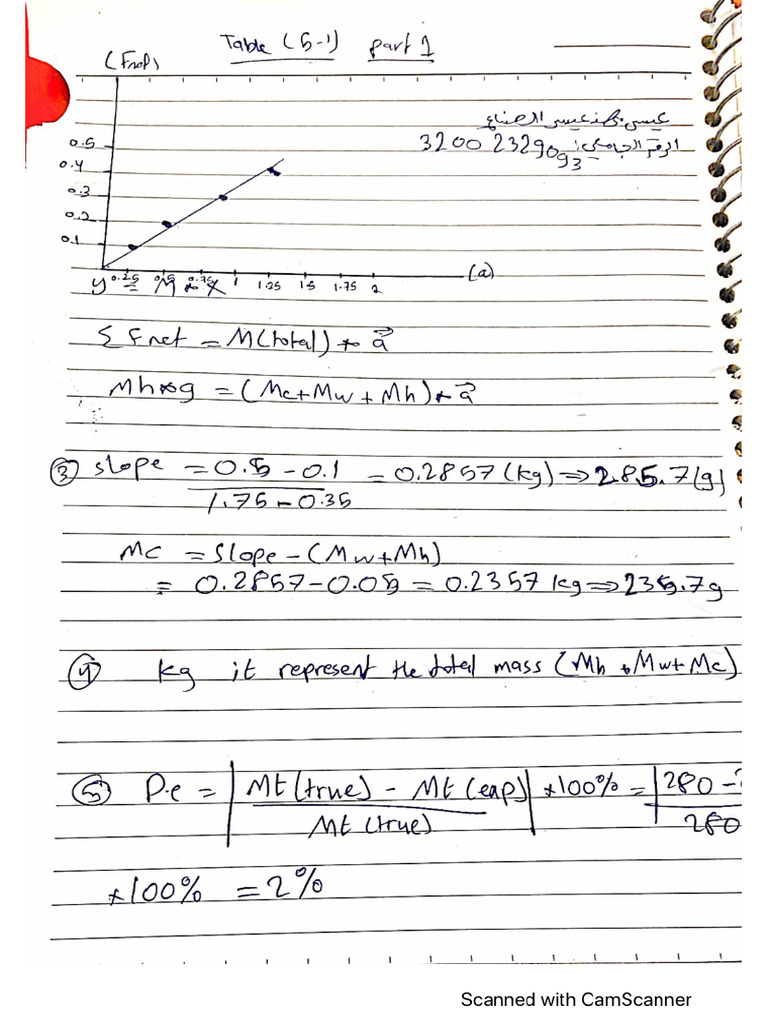 Table (5-1) part 1
(Fnet)
الرقم الجامعي: 3200 2329093
0.5
0.4
0.3
0.2
0.1
0.25 0.5 0.75 1 1.25 1.5 1.75 2 (a)
Σ Fnet = M(total) * a⃗
Mh*g = (Mc+Mw+Mh)*a⃗
③ slope = 0.5 - 0.1 = 0.2857 (kg) ⇒ 285.7(g)
1.75 - 0.35
Mc = slope - (Mw+Mh)
= 0.2857 - 0.05 = 0.2357 kg ⇒ 235.7g
④ kg it represent the total mass (Mh + Mw+ Mc)
⑤ P.e = | Mt(true) - Mt(exp) | *100% = | 280 -
Mt(true) 280
*100% = 2%
Scanned with CamScanner